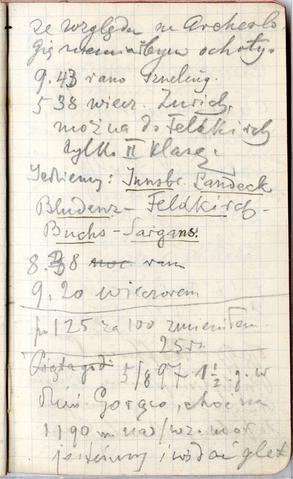 ze względu na Archeolo
gię nie miałbym ochoty.
9.43 rano
5 38 wiecz. Zurich,
można do Feldkirch
tylko II klasą.
Jedziemy: Innsbr. Landeck
Bludenz - Feldkirch -
Buchs - Sargans.
8.38 noc rano
9.20 wieczorem
po 125 za 100 zmieniłem
25 r.
5/8 97 1 1/2 g. w
choć na
1190 m nad/wz. mor.
jesteśmy i widać